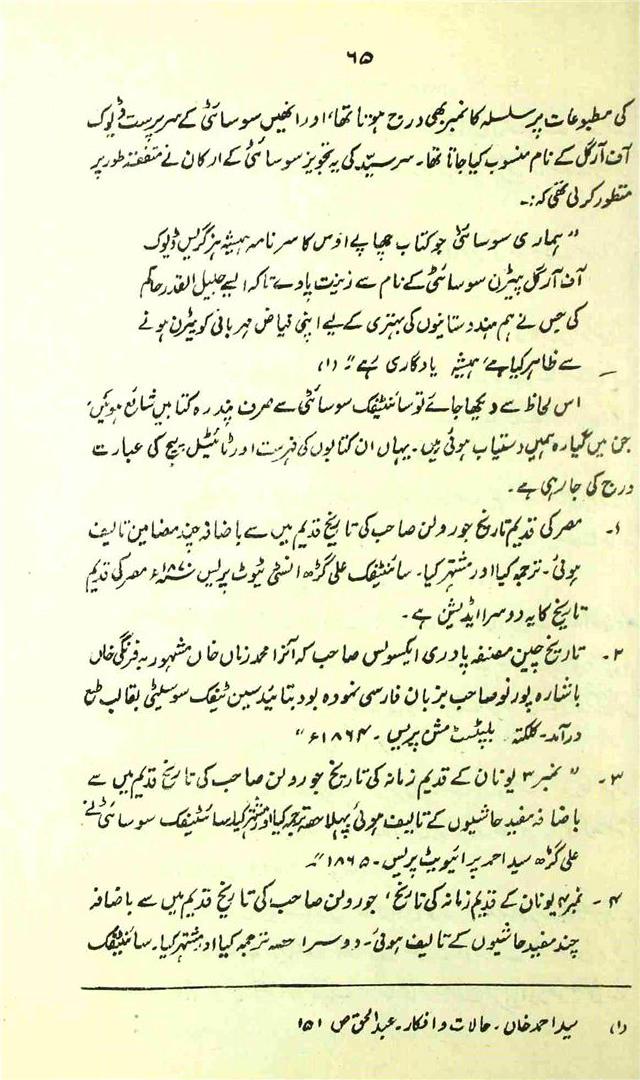 ۶۵
کی مطبوعات پر سلسلہ کا نمبر بھی درج ہوتا تھا، اور انھیں سوسائٹی کے سرپرست ڈیوک
آف آرگل کے نام منسوب کیا جاتا تھا۔ سرسید کی یہ تجویز سوسائٹی کے ارکان نے متفقہ طور پر
منظور کر لی تھی کہ:۔
" ہماری سوسائٹی جو کتاب چھاپے اوس کا سرنامہ ہمیشہ ہزگریس ڈیوک
آف آرگل پیٹرن سوسائٹی کے نام سے زینت پاوے تاکہ ایسے جلیل القدر حاکم
کی جس نے ہم ہندوستانیوں کی بہتری کے لیے اپنی فیاض مہربانی کو پیٹرن ہونے
سے ظاہر کیا ہے، ہمیشہ یادگاری رہے"۔ (۱)
اس لحاظ سے دیکھا جائے تو سائنٹیفک سوسائٹی سے صرف پندرہ کتابیں شائع ہوئیں،
جن میں گیارہ ہمیں دستیاب ہوئی ہیں۔ یہاں ان کتابوں کی فہرست اور ٹائیٹل پیج کی عبارت
درج کی جا رہی ہے۔
۱۔ مصر کی قدیم تاریخ جو رولن صاحب کی تاریخ قدیم میں سے باضافہ چند مضامین تالیف
ہوئی۔ ترجمہ کیا اور مشتہر کیا۔ سائنٹیفک علی گڑھ انسٹی ٹیوٹ پریس ۱۸۷۰ء مصر کی قدیم
تاریخ کا یہ دوسرا ایڈیشن ہے۔
۲۔ تاریخ چین مصنفہ پادری ایکسوئس صاحب کہ آنرا محمد زماں خاں مشہور بہ فرنگی خاں
باشارہ پورنو صاحب بزبان فارسی نمودہ بود بتائید سین ٹیفک سوسیٹی بقالب طبع
درآمد۔ کلکتہ بیپٹسٹ مشن پریس۔ ۱۸۶۴ء"
۳۔ " نمبر ۳ یونان کے قدیم زمانہ کی تاریخ جو رولن صاحب کی تاریخ قدیم میں سے
باضافہ مفید حاشیوں کے تالیف ہوئی پہلا حصہ ترجمہ کیا اور مشتہر کیا سائنٹیفک سوسائٹی نے
علی گڑھ سید احمد پرائیویٹ پریس۔ ۱۸۶۵ء"
۴۔ نمبر ۴ یونان کے قدیم زمانہ کی تاریخ، جو رولن صاحب کی تاریخ قدیم میں سے باضافہ
چند مفید حاشیوں کے تالیف ہوئی۔ دوسرا حصہ ترجمہ کیا اور مشتہر کیا۔ سائنٹیفک
(۱) سید احمد خاں۔ حالات و افکار۔ عبدالحق ص ۱۵۱